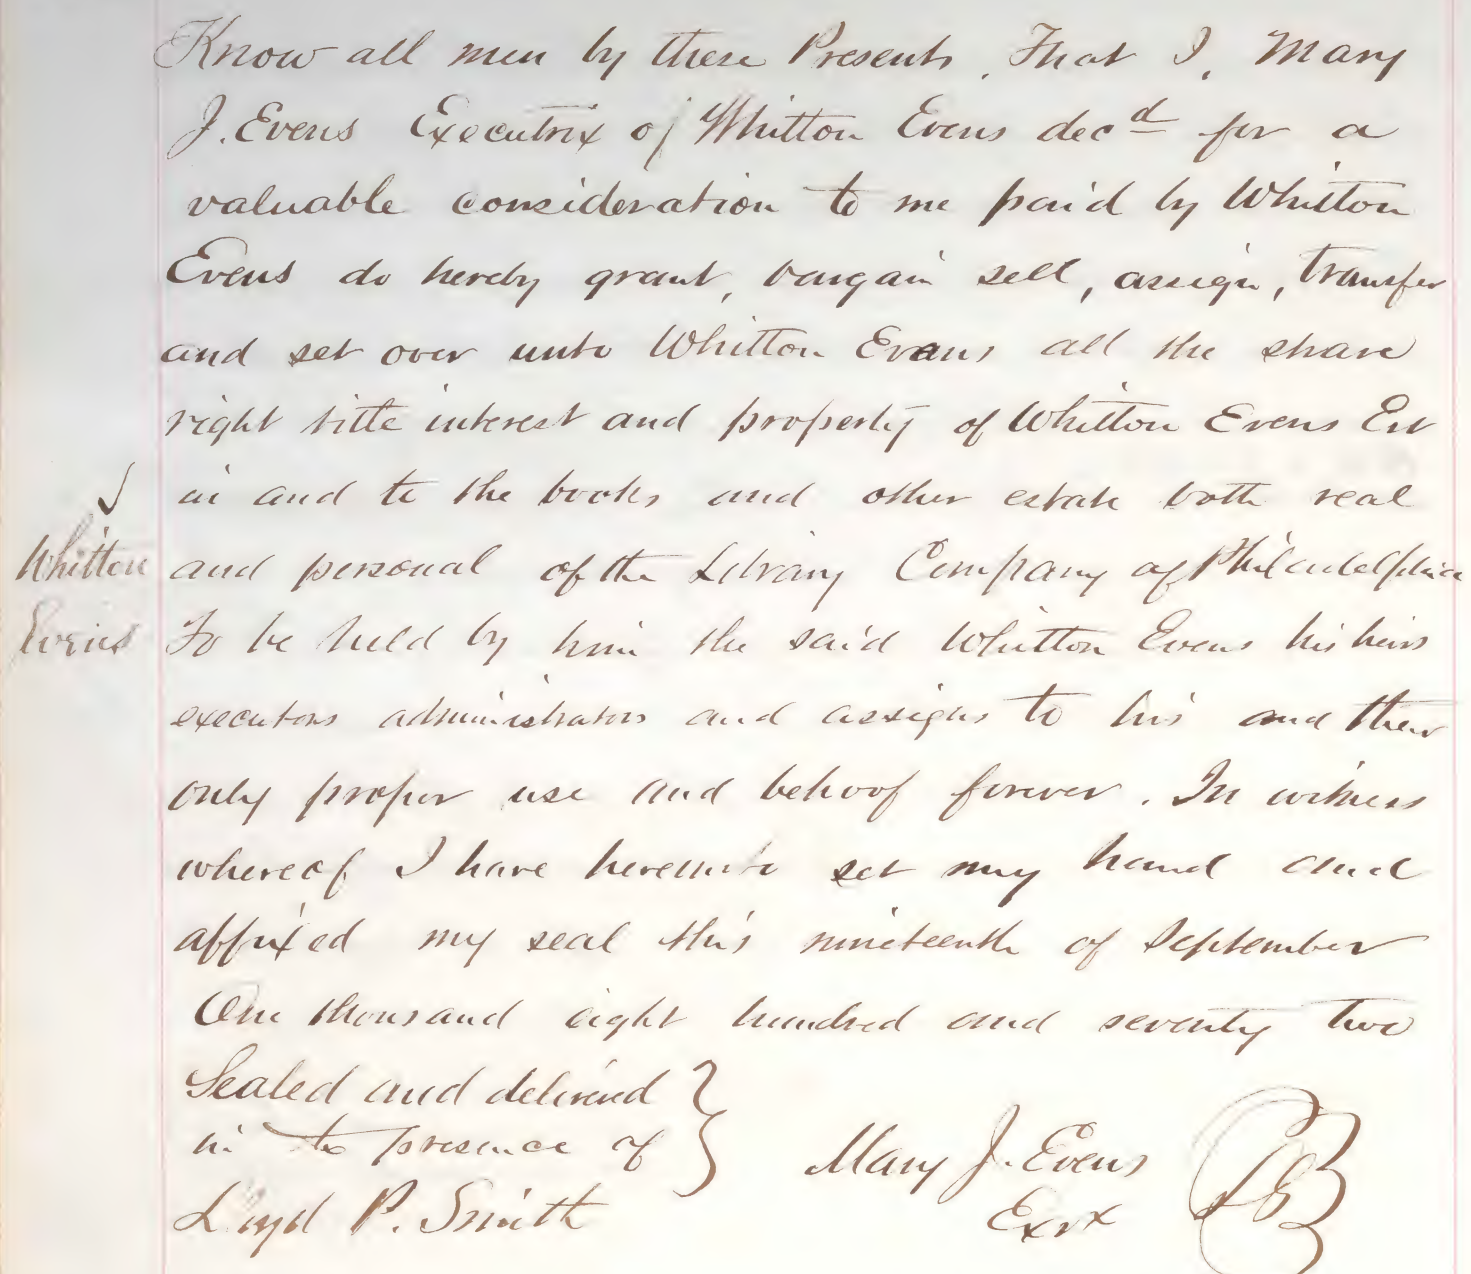 Know all men by these Presents, That I, Mary
J. Evens Executrix of Whitton Evens decd for a
valuable consideration to me paid by Whitton
Evens do hereby grant, bargain sell, assign, transfer
and set over unto Whitton Evans all the share
right title interest and property of Whitton Evens Est
in and to the books and other estate both real
and personal of the Library Company of Philadelphia
To be held by him the said Whitton Evens his heirs
executors administrators and assigns to his and their
only proper use and behoof forever. In witness
whereof I have hereunto set my hand and
affixed my seal this nineteenth of September
One thousand eight hundred and seventy two
Sealed and delivered
in the presence of
Lloyd P. Smith
Mary J. Evens
Exrx
LS
Whitton
Evens